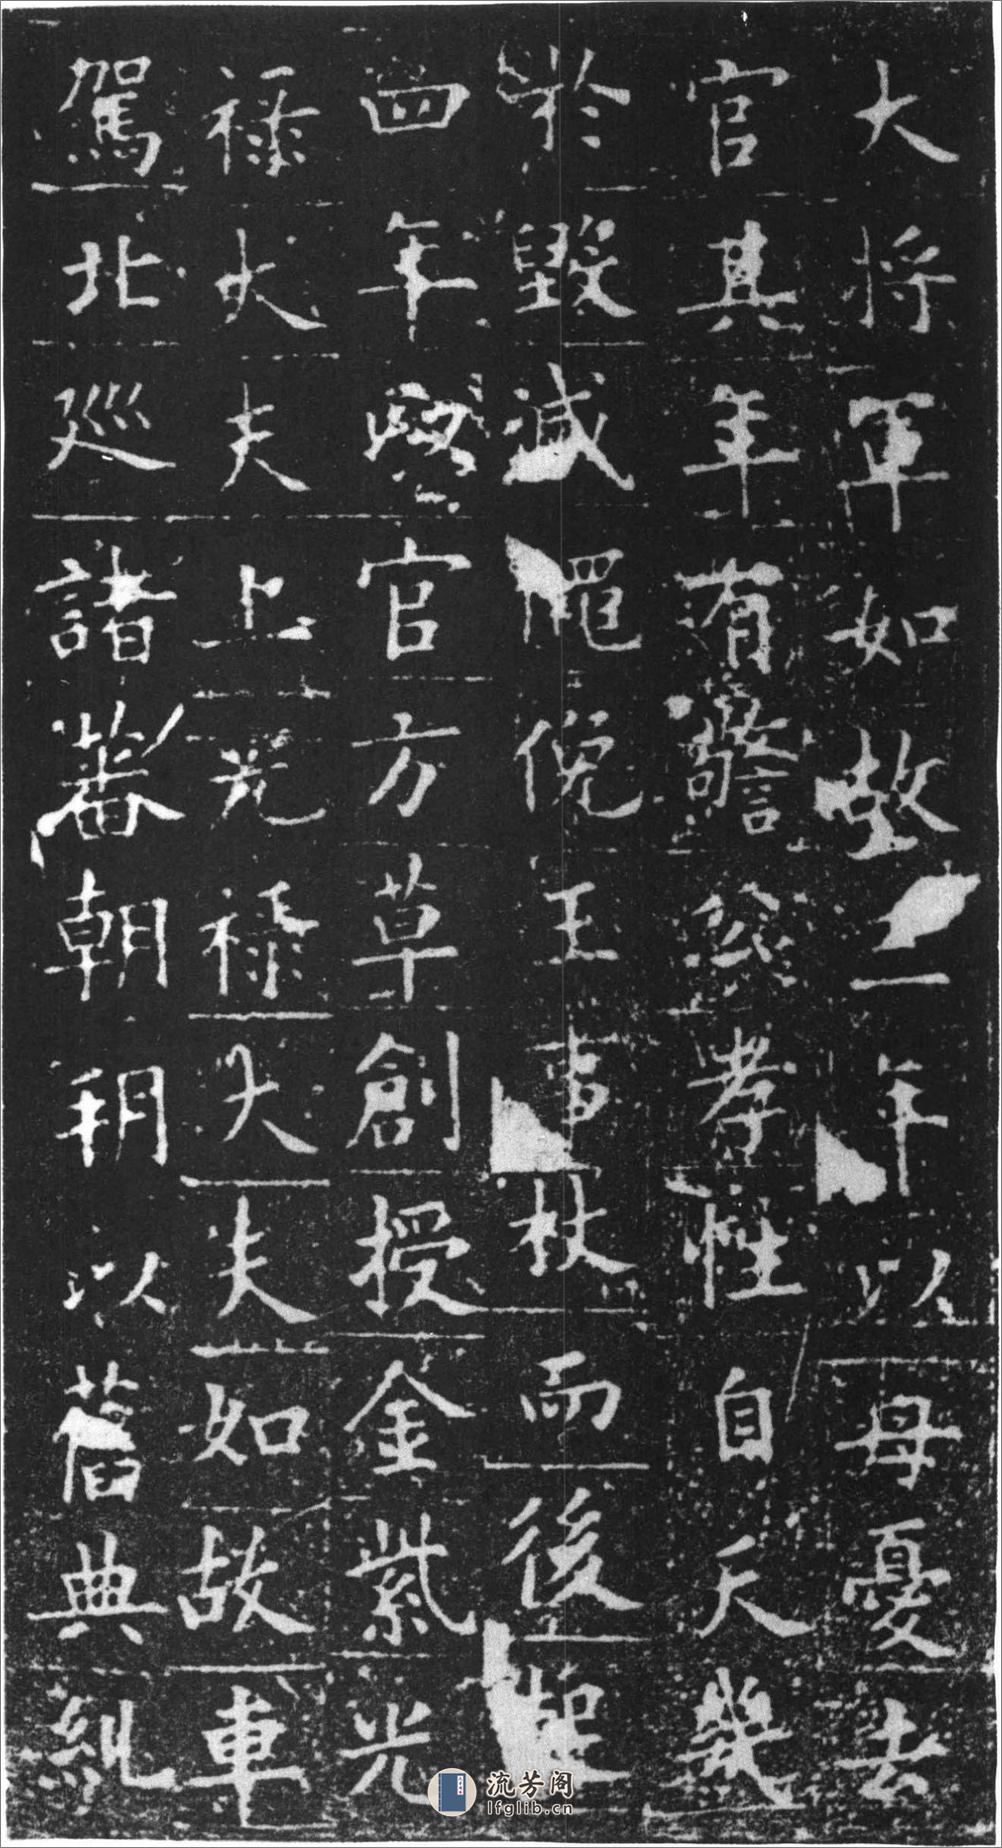 大將軍如故二年以母憂去
官其年有公孝性自天幾
於毀滅僶俛王事杖而後
四年官方草創授金紫光
祿大夫上光祿大夫如故車
駕北巡諸蕃朝以舊典糺
流芳阁
lfglib.cn